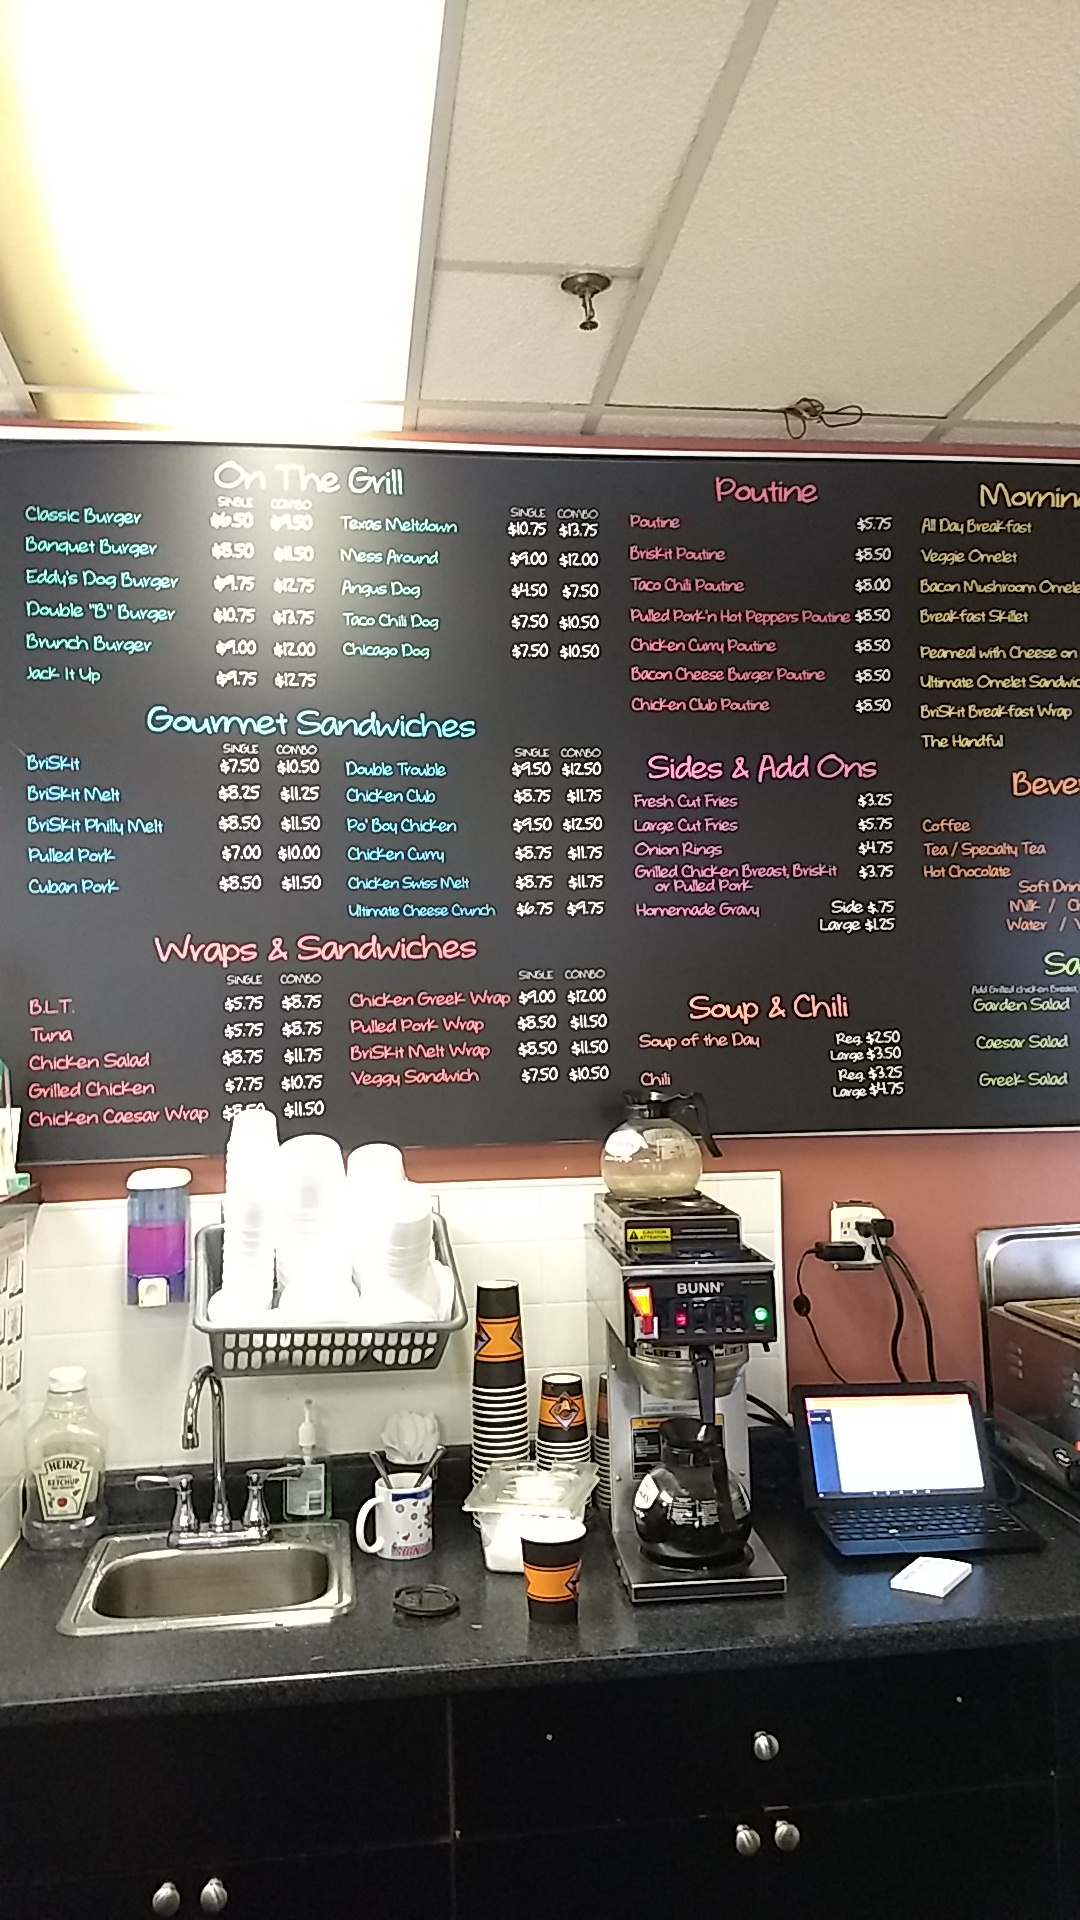 On The Grill
SINGLE COMBO
Classic Burger $6.50 $9.50
Banquet Burger $8.50 $11.50
Eddy's Dog Burger $9.75 $12.75
Double "B" Burger $10.75 $13.75
Brunch Burger $9.00 $12.00
Jack It Up $9.75 $12.75
SINGLE COMBO
Texas Meltdown $10.75 $13.75
Mess Around $9.00 $12.00
Angus Dog $4.50 $7.50
Taco Chili Dog $7.50 $10.50
Chicago Dog $7.50 $10.50
Gourmet Sandwiches
SINGLE COMBO
BriSkit $7.50 $10.50
BriSkit Melt $8.25 $11.25
BriSkit Philly Melt $8.50 $11.50
Pulled Pork $7.00 $10.00
Cuban Pork $8.50 $11.50
SINGLE COMBO
Double Trouble $9.50 $12.50
Chicken Club $8.75 $11.75
Po' Boy Chicken $9.50 $12.50
Chicken Curry $8.75 $11.75
Chicken Swiss Melt $8.75 $11.75
Ultimate Cheese Crunch $6.75 $9.75
Wraps & Sandwiches
SINGLE COMBO
B.L.T. $5.75 $8.75
Tuna $5.75 $8.75
Chicken Salad $8.75 $11.75
Grilled Chicken $7.75 $10.75
Chicken Caesar Wrap $8.50 $11.50
SINGLE COMBO
Chicken Greek Wrap $9.00 $12.00
Pulled Pork Wrap $8.50 $11.50
BriSkit Melt Wrap $8.50 $11.50
Veggy Sandwich $7.50 $10.50
Poutine
Poutine $5.75
Briskit Poutine $8.50
Taco Chili Poutine $8.00
Pulled Pork'n Hot Peppers Poutine $8.50
Chicken Curry Poutine $8.50
Bacon Cheese Burger Poutine $8.50
Chicken Club Poutine $8.50
Sides & Add Ons
Fresh Cut Fries $3.25
Large Cut Fries $5.75
Onion Rings $4.75
Grilled Chicken Breast, Briskit $3.75
or Pulled Pork
Homemade Gravy Side $.75
Large $1.25
Soup & Chili
Soup of the Day Reg. $2.50
Large $3.50
Chili Reg. $3.25
Large $4.75
Mornin
All Day Breakfast
Veggie Omelet
Bacon Mushroom Omele
Breakfast Skillet
Peameal with Cheese on
Ultimate Omelet Sandwic
BriSkit Breakfast Wrap
The Handful
Beve
Coffee
Tea / Specialty Tea
Hot Chocolate
Soft Drin
Milk / Ch
Water /
Sa
Add Grilled chicken Breast,
Garden Salad
Caesar Salad
Greek Salad
CAUTION
ATTENTION
BUNN
HEINZ
KETCHUP